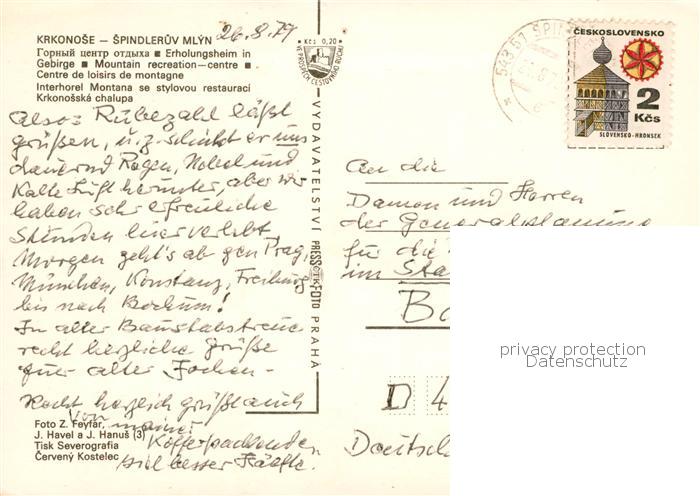 KRKONOŠE – ŠPINDLERŮV MLÝN 26.8.79
Горный центр отдыха ■ Erholungsheim in
Gebirge ■ Mountain recreation-centre ■
Centre de loisirs de montagne
Interhorel Montana se stylovou restaurací
Krkonošská chalupa
Kčs 0,20
VE PROSPĚCH CESTOVNÍHO RUCHU
Also: Rübezahl läßt
grüßen, u.z. schickt er uns
dauernd Regen, Nebel und
kalte Luft herunter, aber wir
haben sehr erfreuliche
Stunden hier verlebt.
Morgen geht's ab gen Prag,
München, Konstanz, Freiburg
bis nach Bochum!
In alter Baustabstreue
recht herzliche Grüße
Euer alter Jochen –
Recht herzlich grüßt auch
von meiner
Kofferpackenden
viel besser Hälfte.
Foto Z. Feyfar,
J. Havel a J. Hanuš (3)
Tisk Severografia
Červený Kostelec
VYDAVATELSTVÍ PRESSFOTO PRAHA
ČTK
543 51 ŠPIN
ČESKOSLOVENSKO
2
Kčs
SLOVENSKO-HRONSEK
An die
Damen und Herren
der Generalplanung
für die
im Sta
Bo
D 4
Deutsch
privacy protection
Datenschutz